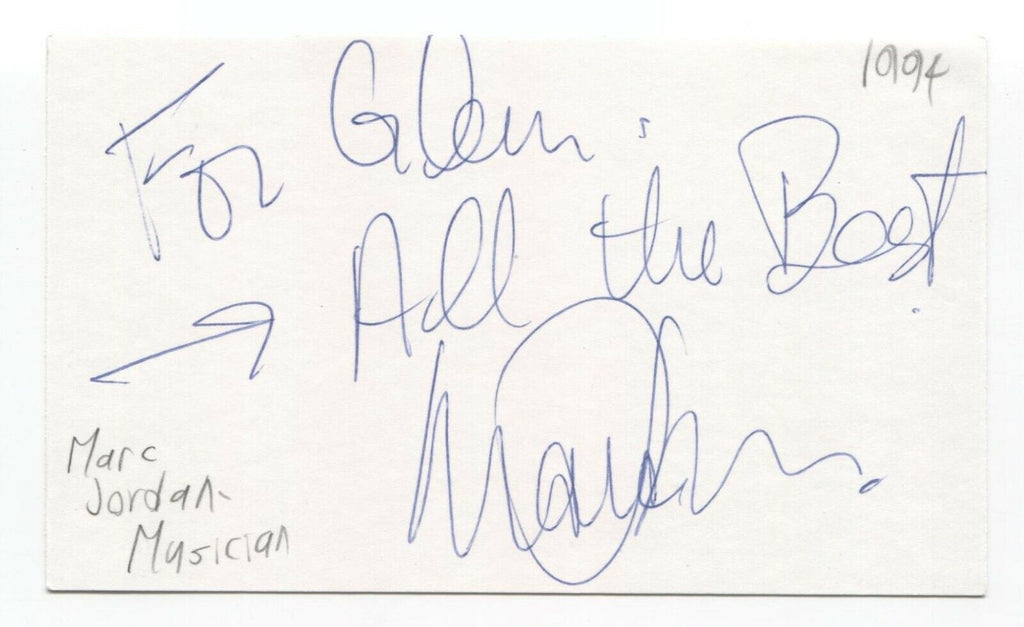 1994
For Glenn:
All the Best!
Marc Jordan
Marc
Jordan-
Musician